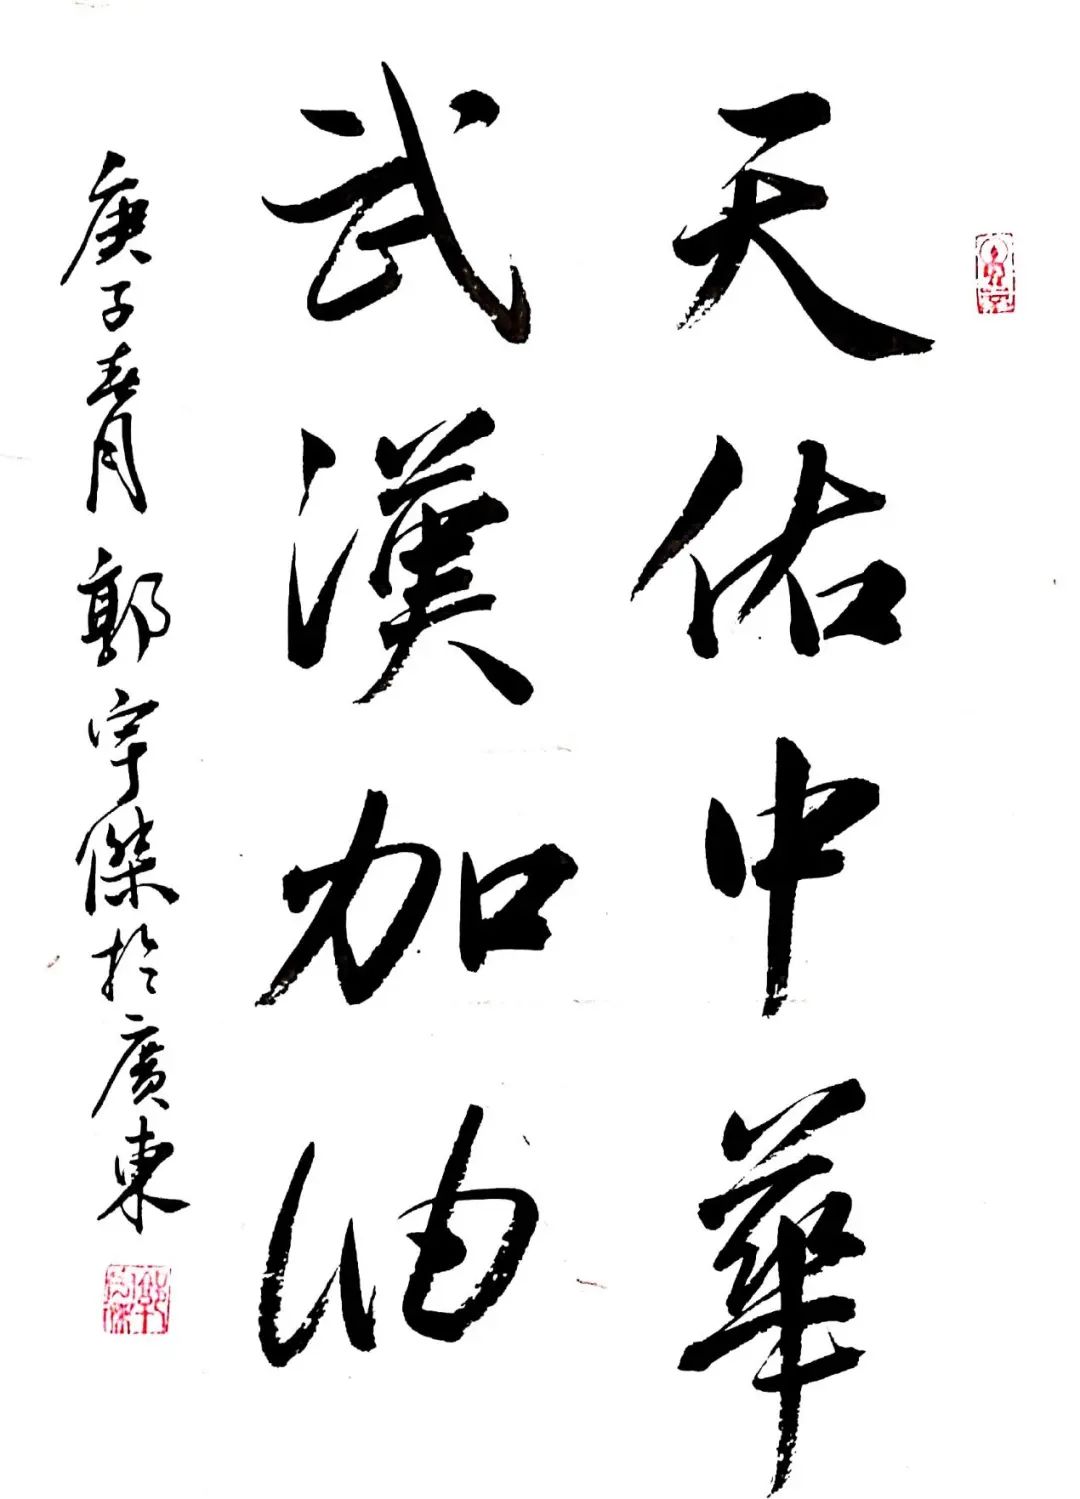 天佑中華
武漢加油
庚子春月郭宇傑於廣東